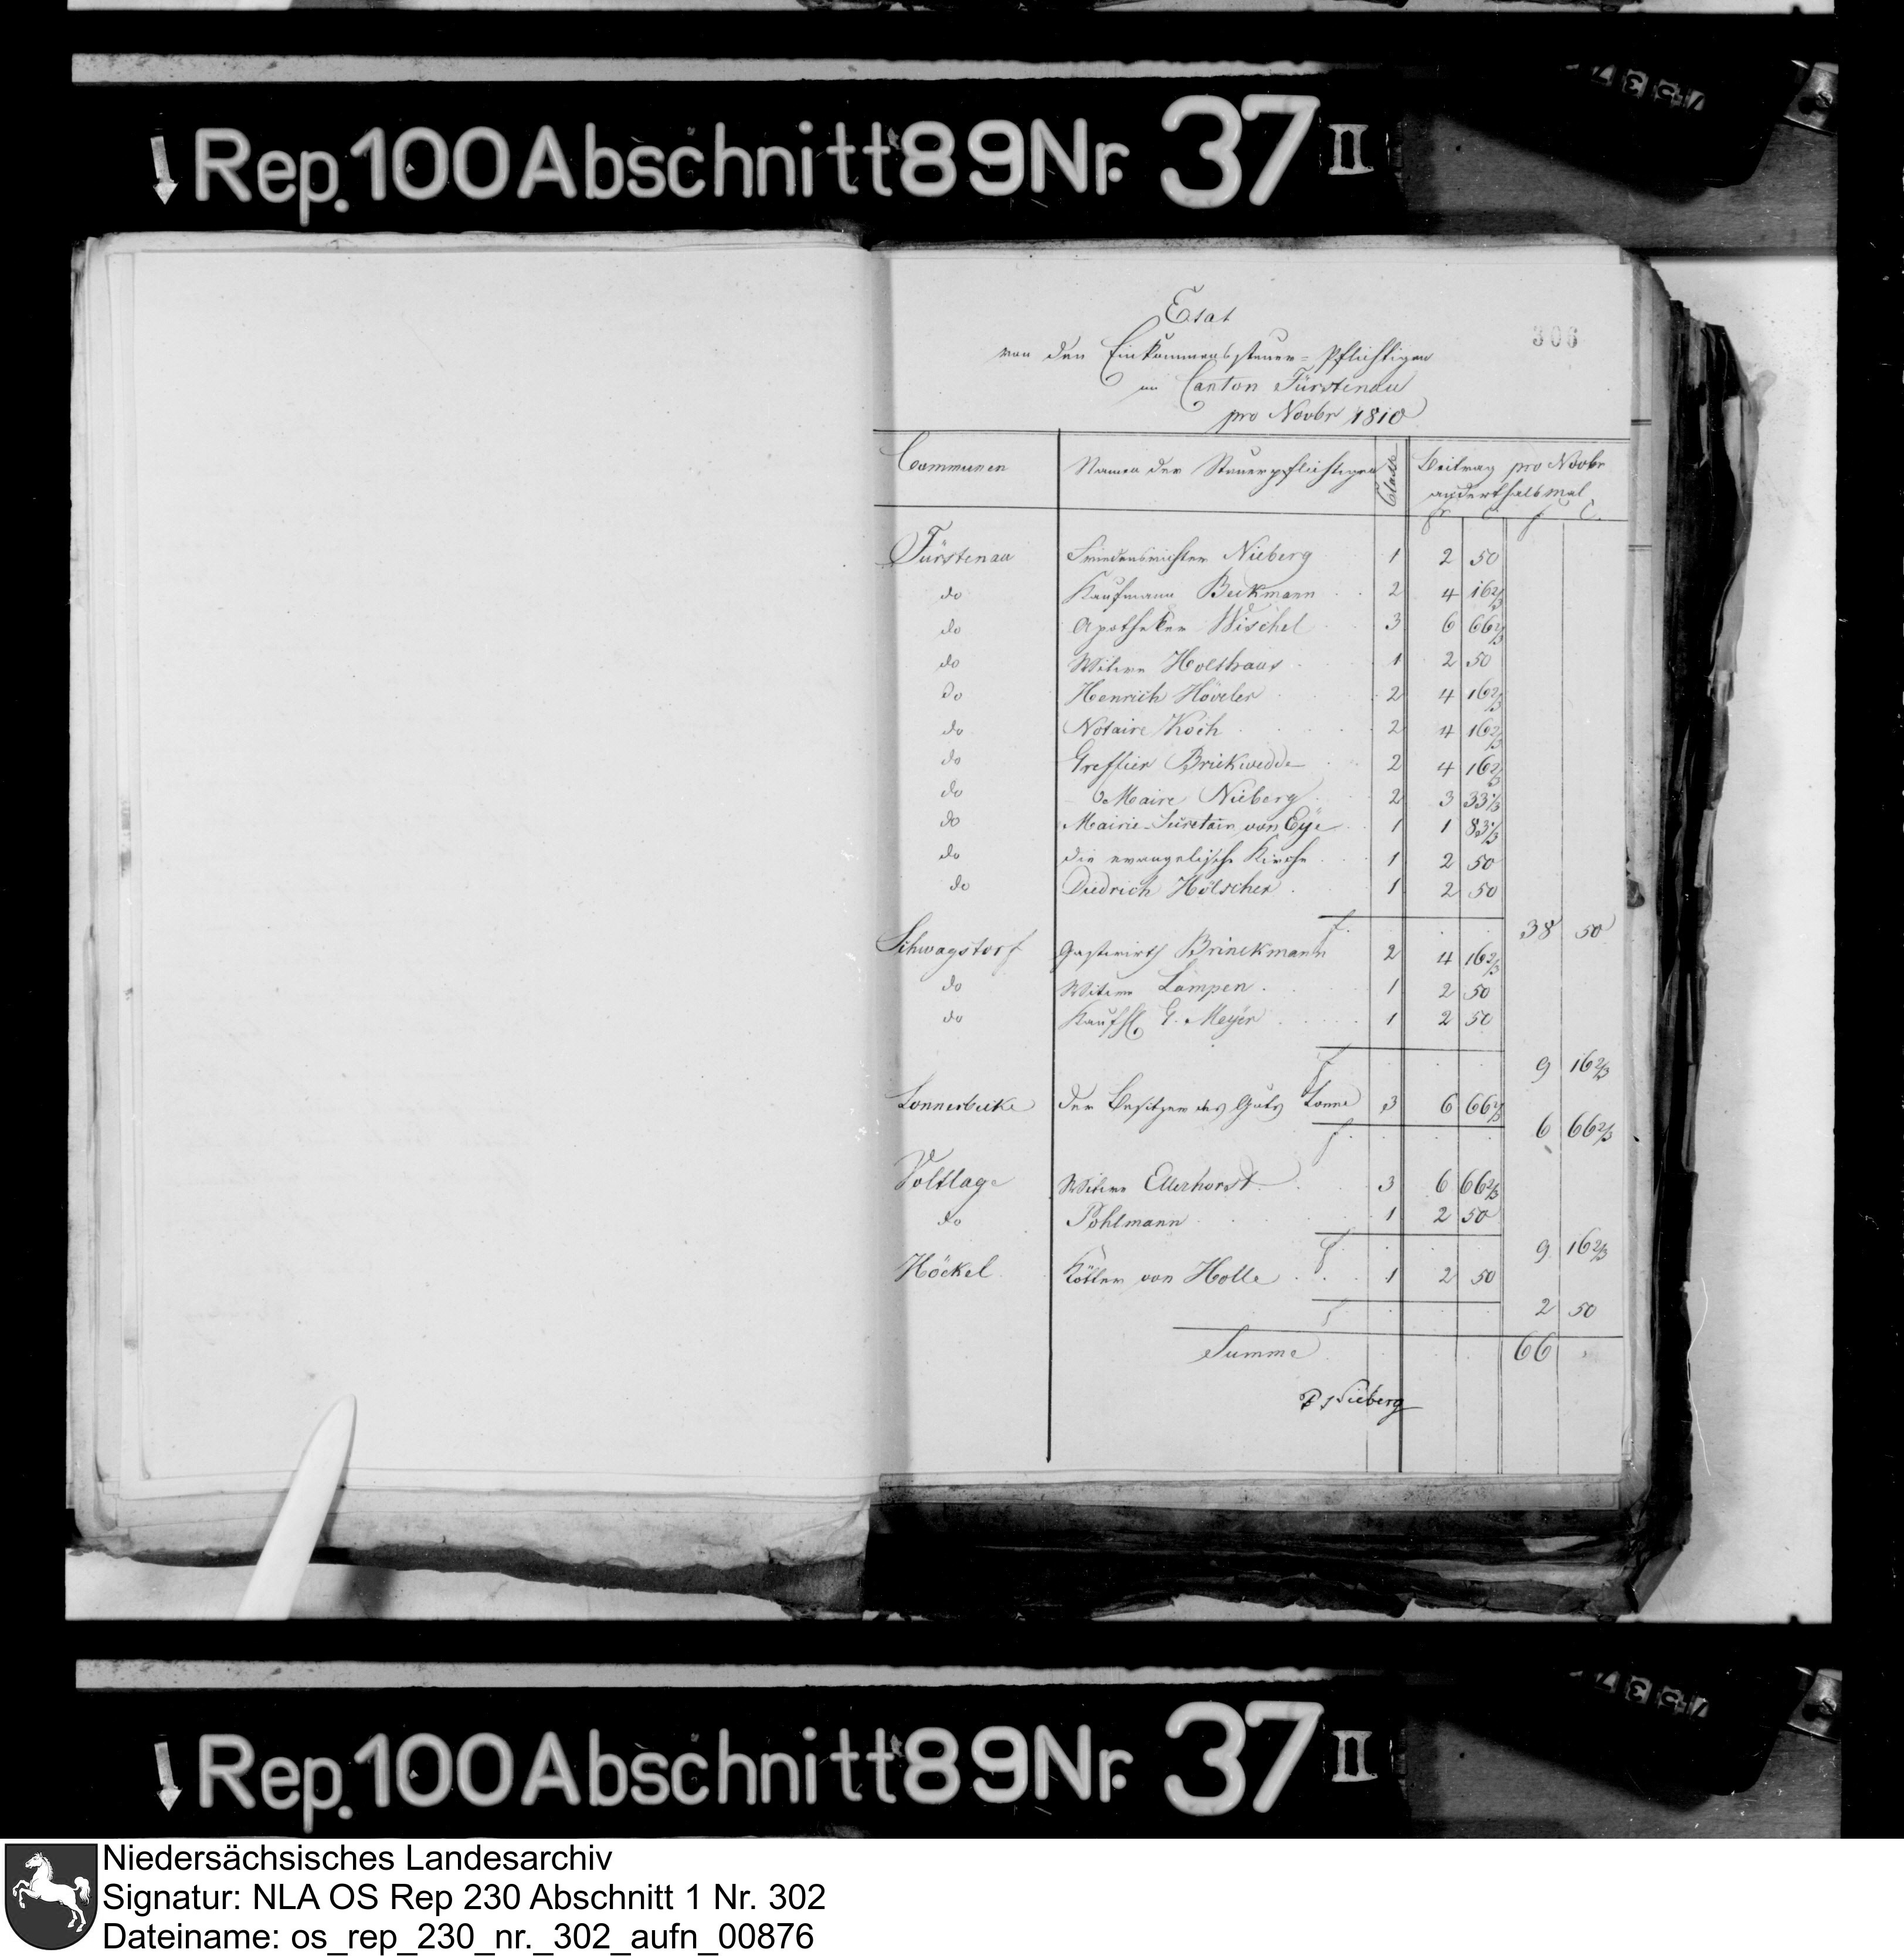 Rep. 100 Abschnitt 89 Nr. 37 II
306
Etat
von den Einkommenssteuer=Pflichtigen
im Canton Fürstenau
pro Novbr 1810
Communen Namen der Steuerpflichtigen Classe Beitrag pro Novbr
anderthalbmal
fr C. f C.
Fürstenau Friedensrichter Nieberg 1 2 50
do Kaufmann Beckmann 2 4 16 2/3
do Apotheker Wischel 3 6 66 2/3
do Witwe Holthaus 1 2 50
do Henrich Höveler 2 4 16 2/3
do Notaire Koch 2 4 16 2/3
do Greffier Brickwedde 2 4 16 2/3
do Maire Nieberg 2 3 33 1/3
do Mairie-Secretair von Eye 1 1 83 1/3
do die evangelische Kirche 1 2 50
do Diedrich Hölscher 1 2 50
f. 38 50
Schwagstorf Gastwirth Brinckmann 2 4 16 2/3
do Witwe Lampen 1 2 50
do Kaufhl G. Meyer 1 2 50
f 9 16 2/3
Lonnerbecke der Besitzer des Guts Lonne 3 6 66 2/3
f. 6 66 2/3
Voltlage Witwe Ellerhorst 3 6 66 2/3
do Pohlmann 1 2 50
f 9 16 2/3
Höckel Kötter von Holle 1 2 50
f 2 50
Summe 66
Nieberg
Rep. 100 Abschnitt 89 Nr. 37 II
Niedersächsisches Landesarchiv
Signatur: NLA OS Rep 230 Abschnitt 1 Nr. 302
Dateiname: os_rep_230_nr._302_aufn_00876